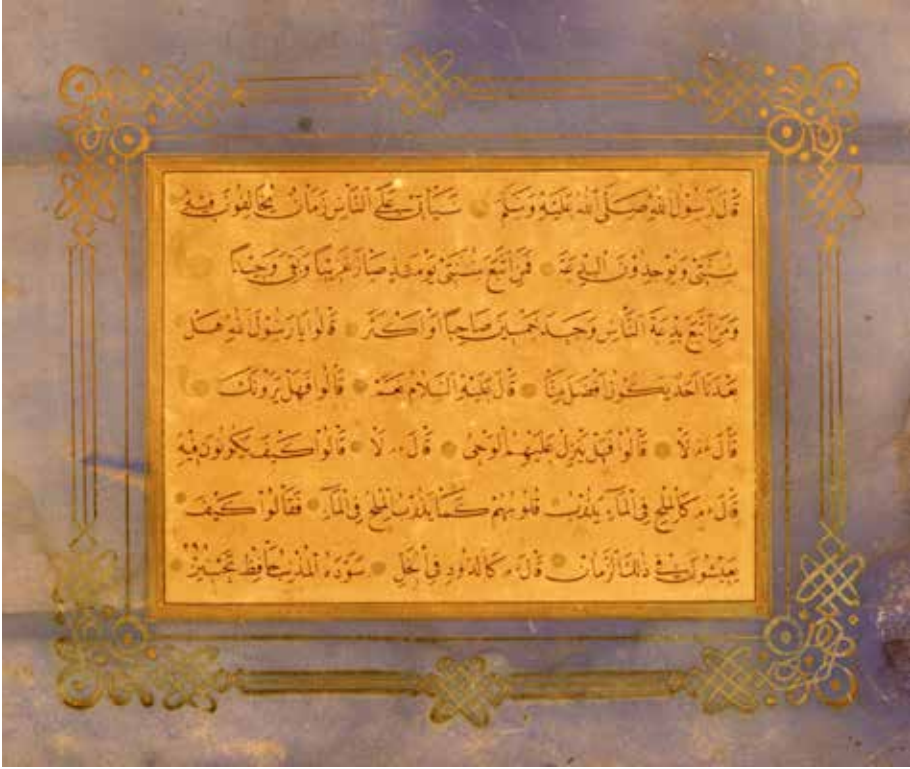 قَالَ رَسُولُ اللهِ صَلَّى اللهُ عَلَيْهِ وَسَلَّمَ سَيَأْتِي عَلَى النَّاسِ زَمَانٌ يُخَالِفُونَ فِيهِ
سُنَّتِي وَيُوجِدُونَ الْبِدْعَةَ فَمَنِ اتَّبَعَ سُنَّتِي يَوْمَئِذٍ صَارَ غَرِيبًا وَبَقِيَ وَحِيدًا
وَمَنِ اتَّبَعَ بِدْعَةَ النَّاسِ وَجَدَ خَمْسِينَ صَاحِبًا أَوْ أَكْثَرَ قَالُوا يَا رَسُولَ اللهِ هَلْ
بَعْدَنَا أَحَدٌ يَكُونُ أَفْضَلَ مِنَّا قَالَ عَلَيْهِ السَّلَامُ نَعَمْ قَالُوا فَهَلْ يَرَوْنَكَ
قَالَ لَا قَالُوا فَهَلْ يَنْزِلُ عَلَيْهِمُ الْوَحْيُ قَالَ لَا قَالُوا كَيْفَ يَكُونُونَ فِيهِ
قَالَ كَالْمِلْحِ فِي الْمَاءِ يَذُوبُ قُلُوبُهُمْ كَمَا يَذُوبُ الْمِلْحُ فِي الْمَاءِ فَقَالُوا كَيْفَ
يَعِيشُونَ فِي ذَلِكَ الزَّمَانِ قَالَ كَالدُّودِ فِي الْخَلِّ سَوَّدَهُ الْمُذْنِبُ حَافِظ